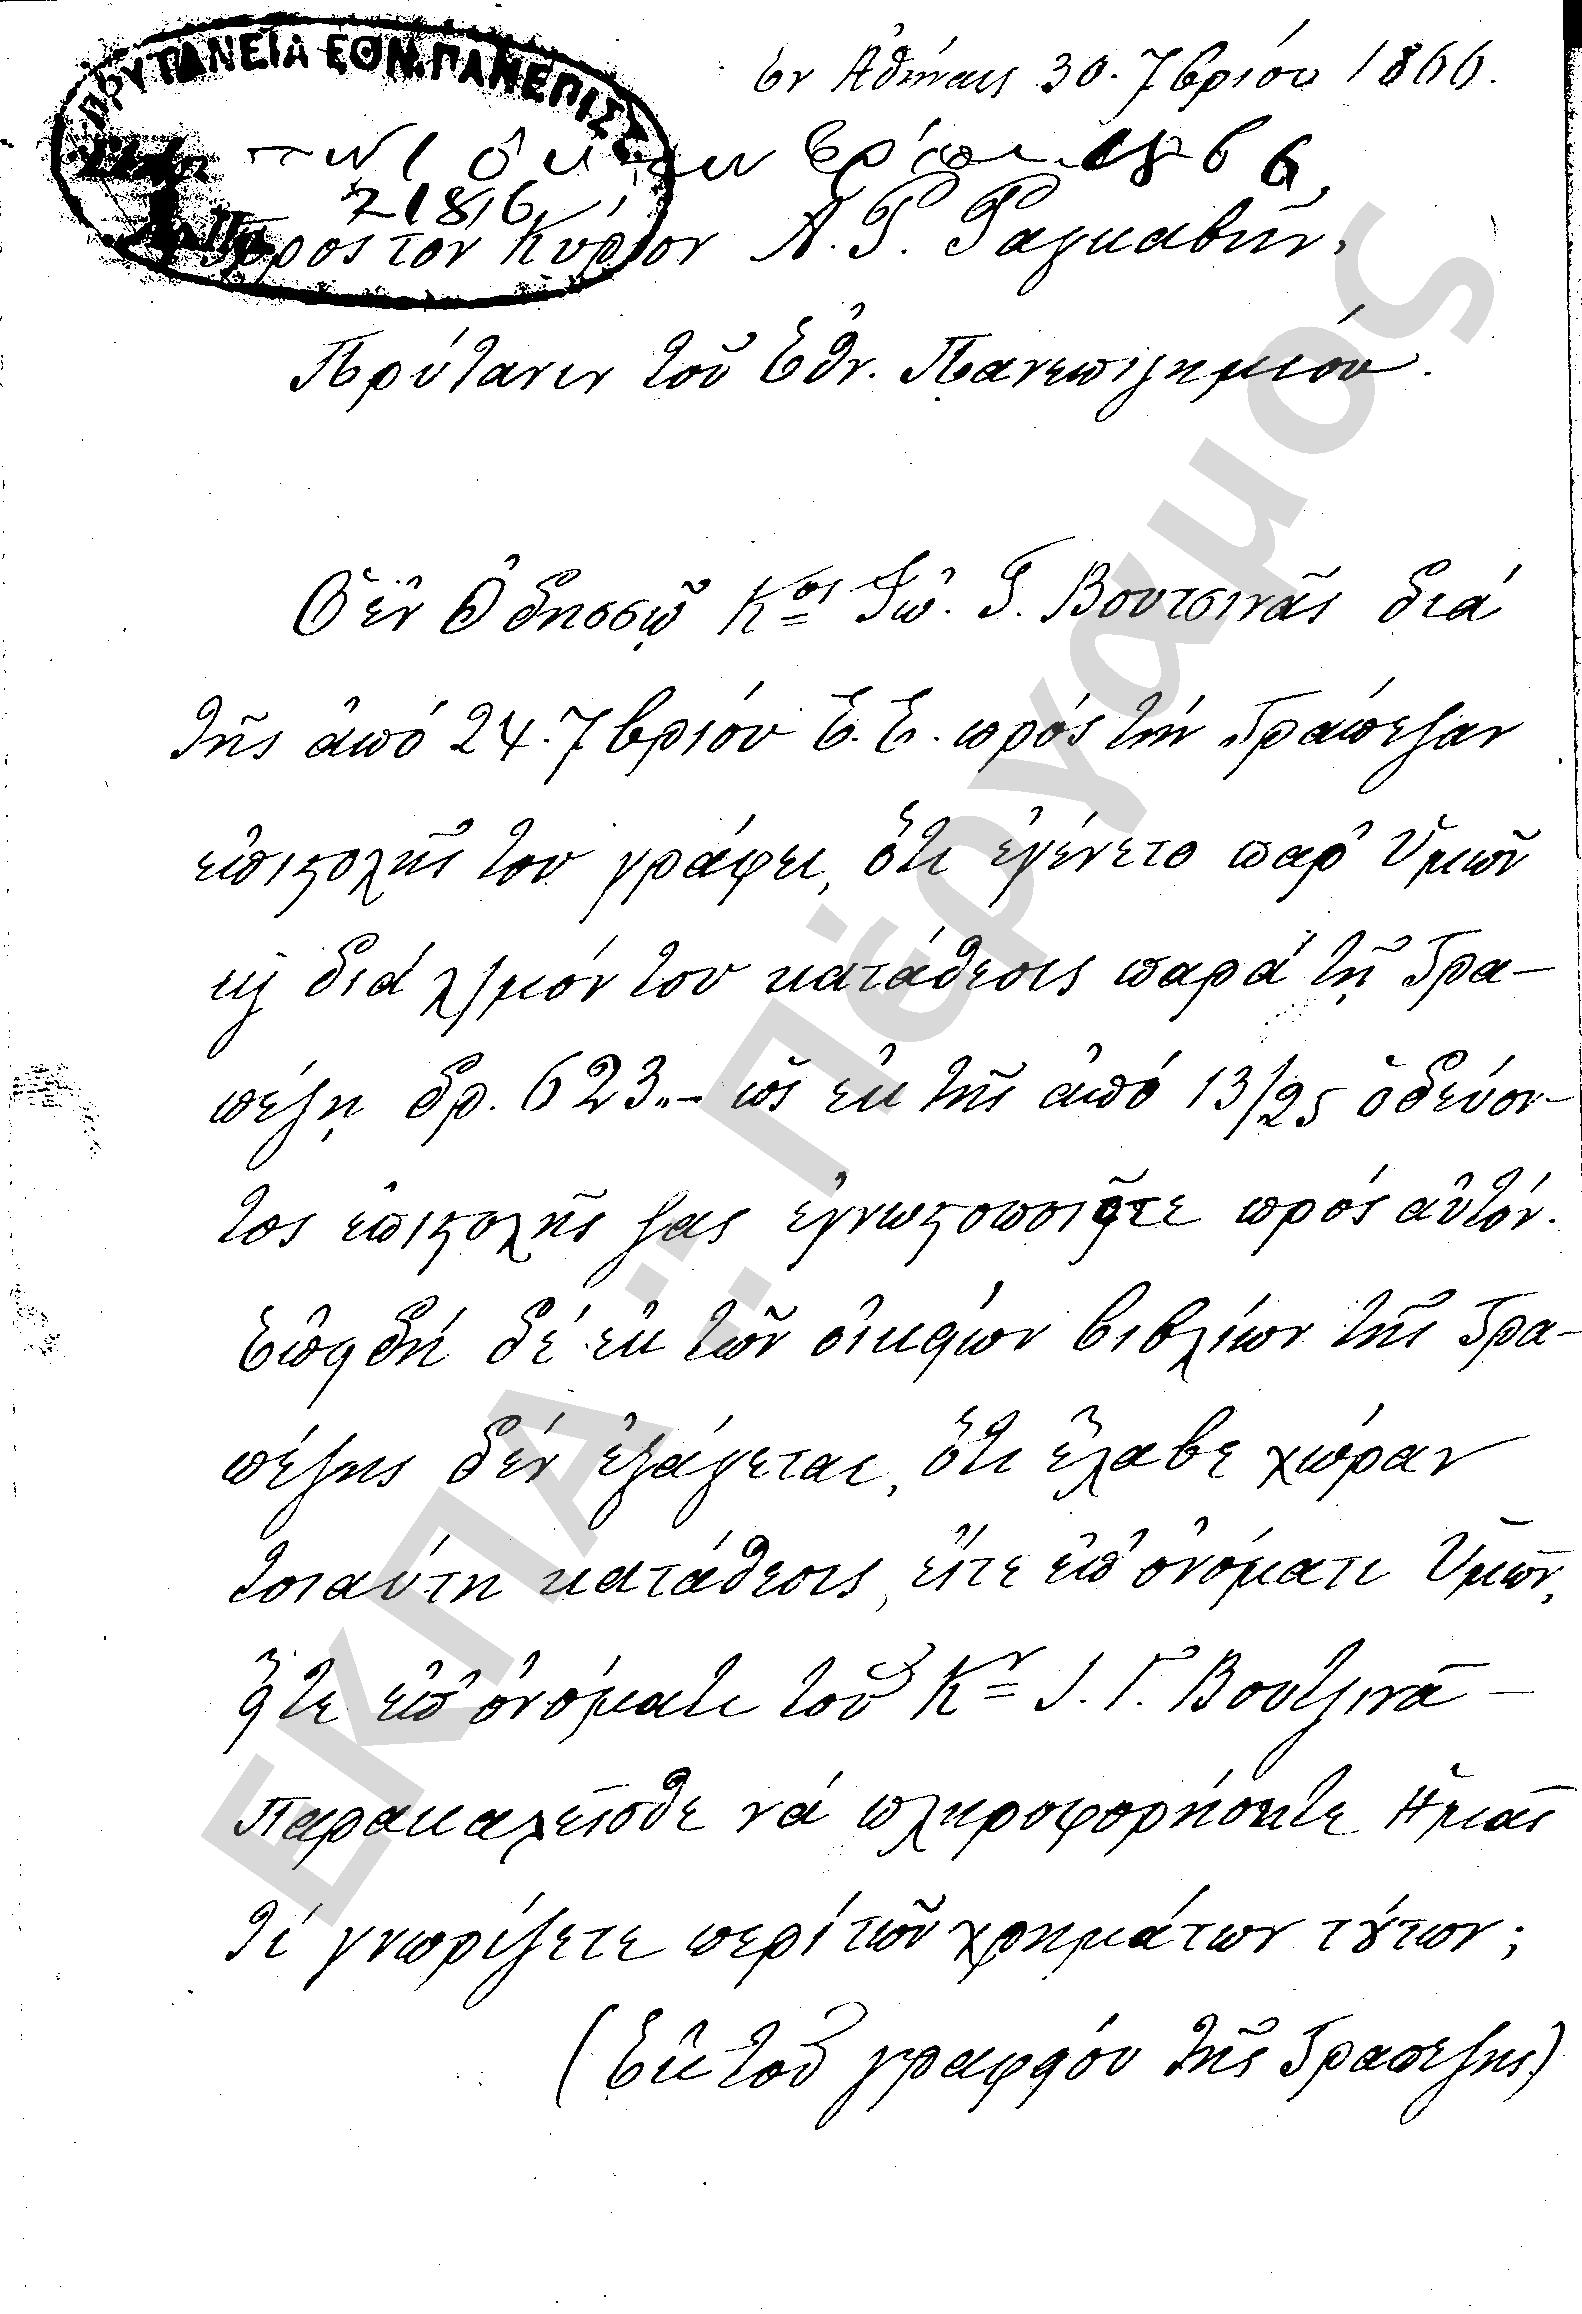 ΠΡΥΤΑΝΕΙΑ ΕΘΝ. ΠΑΝΕΠΙΣΤ
ἐν Ἀθήναις 30. 7βρίου 1866.
τὴν 1 1866
21816
Πρὸς τὸν Κύριον Α. Ρ. Ραγκαβῆν,
Πρύτανιν τοῦ Ἐθν. Πανεπιστημίου.
Ὁ ἐν Ὀδησσῷ Κος Ἰω. Γ. Βουτσινᾶς διὰ
τῆς ἀπὸ 24. 7βρίου Ἐ. Ἐ. πρὸς τὴν Τράπεζαν
ἐπιστολῆς του γράφει, ὅτι ἐγένετο παρ' Ὑμῶν
κ διὰ λ/μόν του κατάθεσις παρὰ τῇ Τρα-
πέζῃ δρ. 623.- ὡς ἐκ τῆς ἀπὸ 13/25 ὁδεύον-
τος ἐπιστολῆς σας ἐγνωστοποιεῖτε πρὸς αὐτόν.
Ἐπειδὴ δὲ ἐκ τῶν οἰκείων βιβλίων τῆς Τρα-
πέζης δὲν ἐξάγεται, ὅτι ἔλαβε χώραν
τοιαύτη κατάθεσις, εἴτε ἐπ' ὀνόματι Ὑμῶν,
εἴτε ἐπ' ὀνόματι τοῦ Κυ Ι. Γ. Βουτσινᾶ -
Παρακαλεῖσθε νὰ πληροφορήσητε Ἡμᾶς
τί γνωρίζετε περὶ τῶν χρημάτων τούτων;
(Ἐκ τοῦ γραφείου τῆς Τραπέζης)
ΕΚΠΑ : Πέργαμος